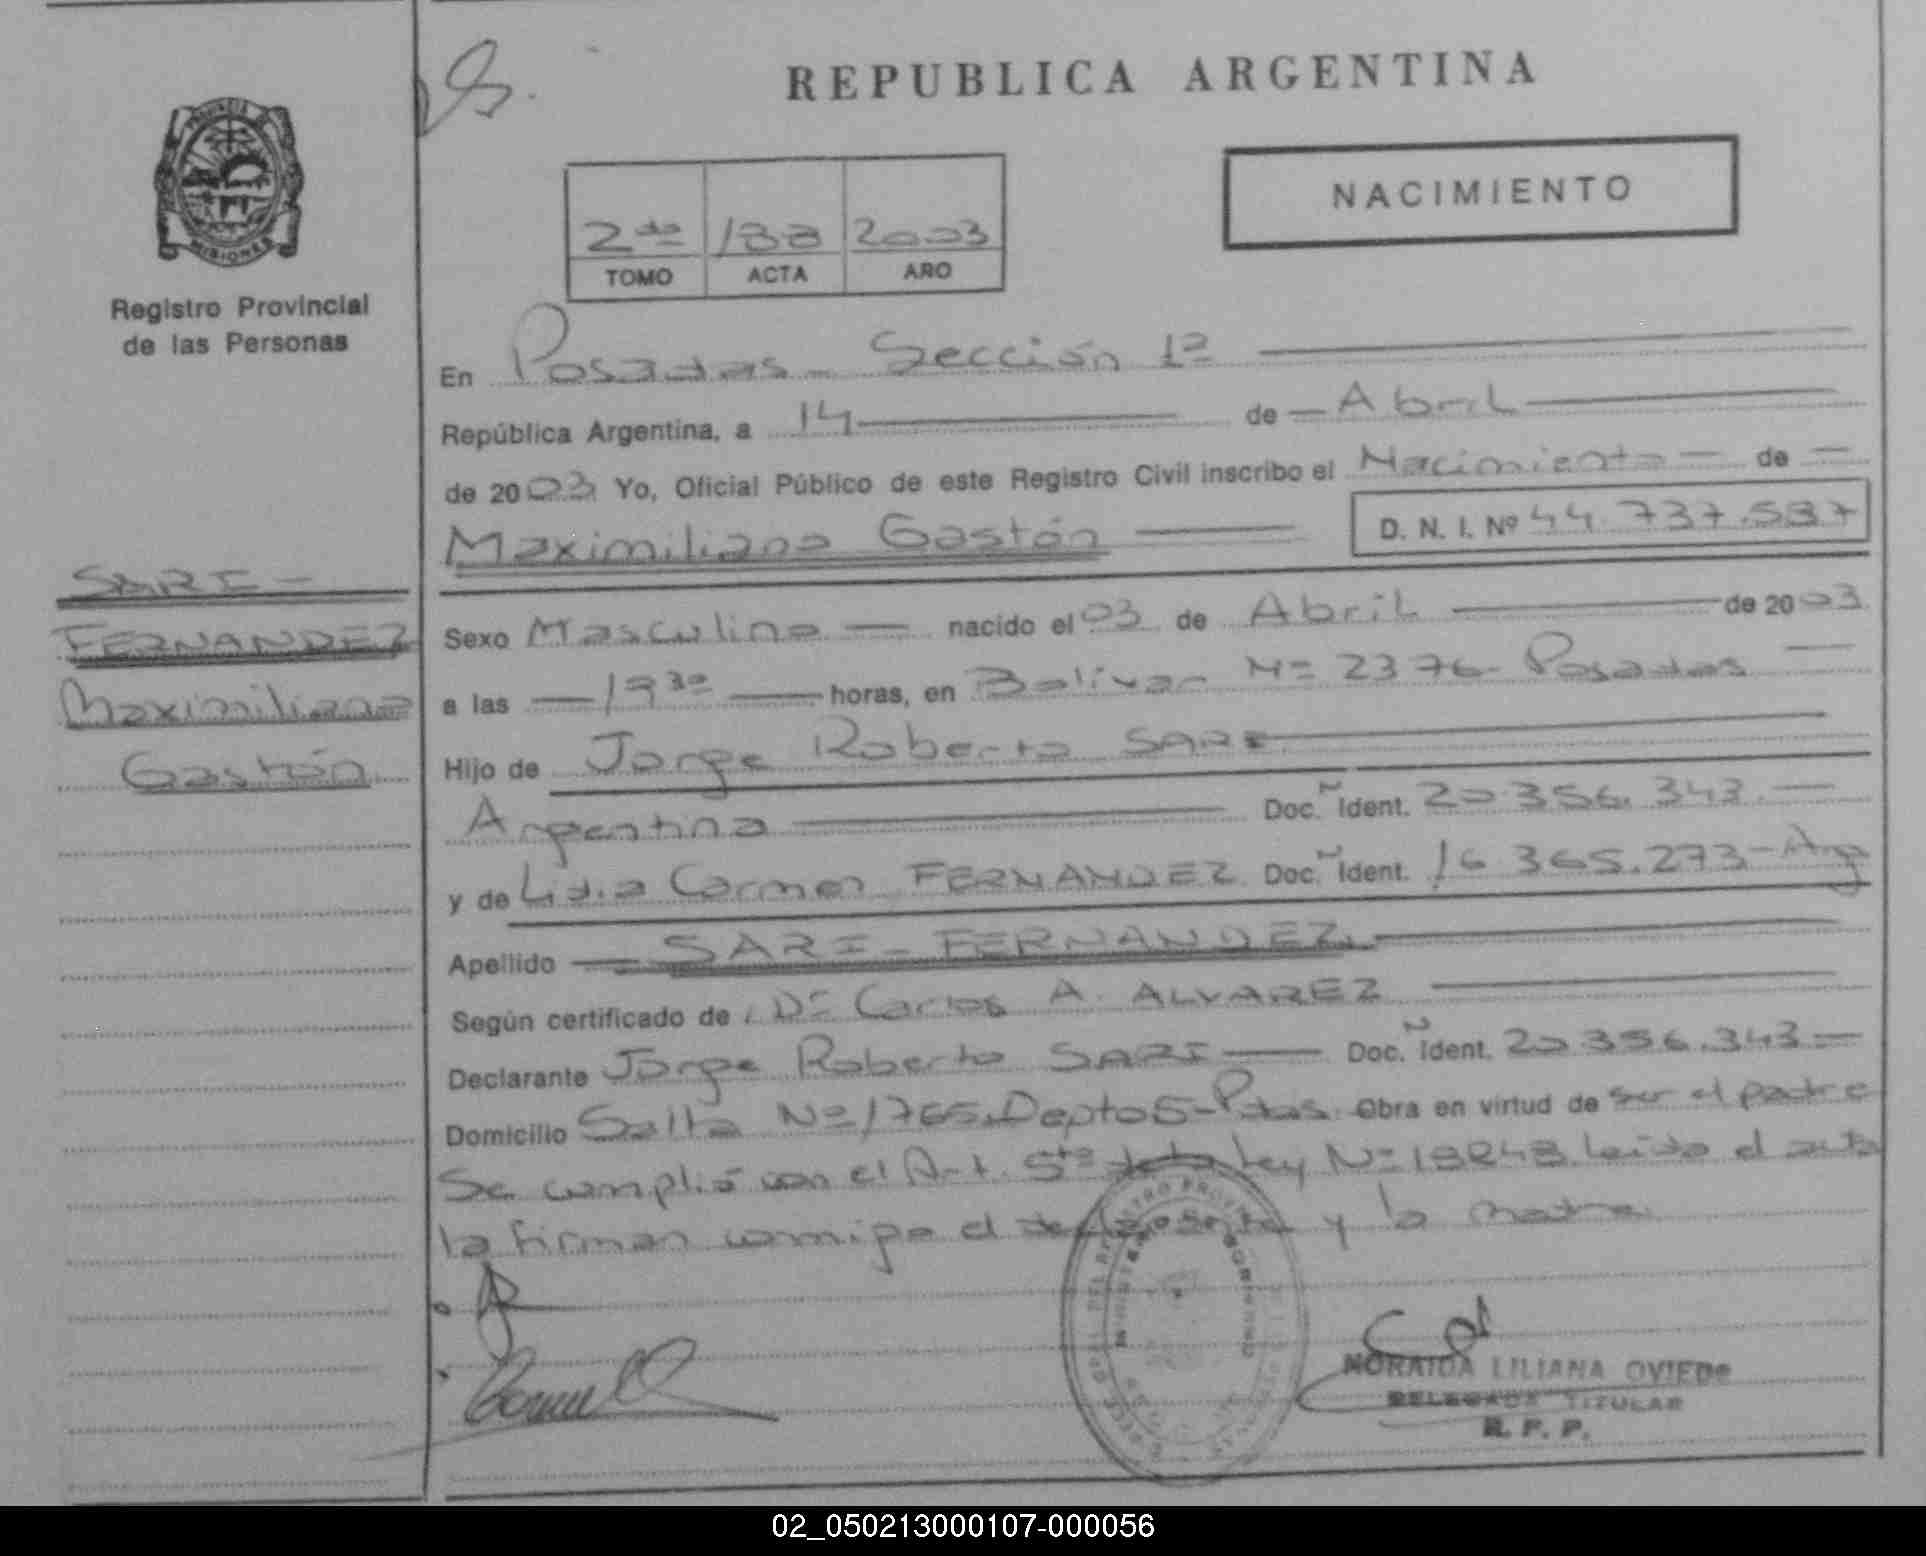 REPUBLICA ARGENTINA
PROVINCIA
MISIONES
Registro Provincial
de las Personas
NACIMIENTO
2do 188 2003
TOMO ACTA AÑO
En Posadas - Sección 1ª
República Argentina, a 14 de Abril
de 2003 Yo, Oficial Público de este Registro Civil inscribo el Nacimiento de
Maximiliano Gastón D. N. I. Nº 44.737.587
SARI -
FERNANDEZ
Maximiliano
Gastón
Sexo Masculino nacido el 03 de Abril de 2003
a las 19 30 horas, en Bolivar Nº 2376 Posadas
Hijo de Jorge Roberto SARI
Argentino Doc. Ident. 20.356.343
y de Lidia Carmen FERNANDEZ Doc. Ident. 16.365.273 - Arg
Apellido SARI - FERNANDEZ
Según certificado de Dr Carlos A. ALVAREZ
Declarante Jorge Roberto SARI Doc. Ident. 20.356.343
Domicilio Salta Nº 1765 Depto 5 - Pdas. Obra en virtud de ser el padre
Se cumplió con el Art. 5to de la Ley Nº leida el acta
la firman conmigo el declarante y la madre
NORAIDA LILIANA OVIEDO
DELEGADA TITULAR
R. P. P.
02_050213000107-000056